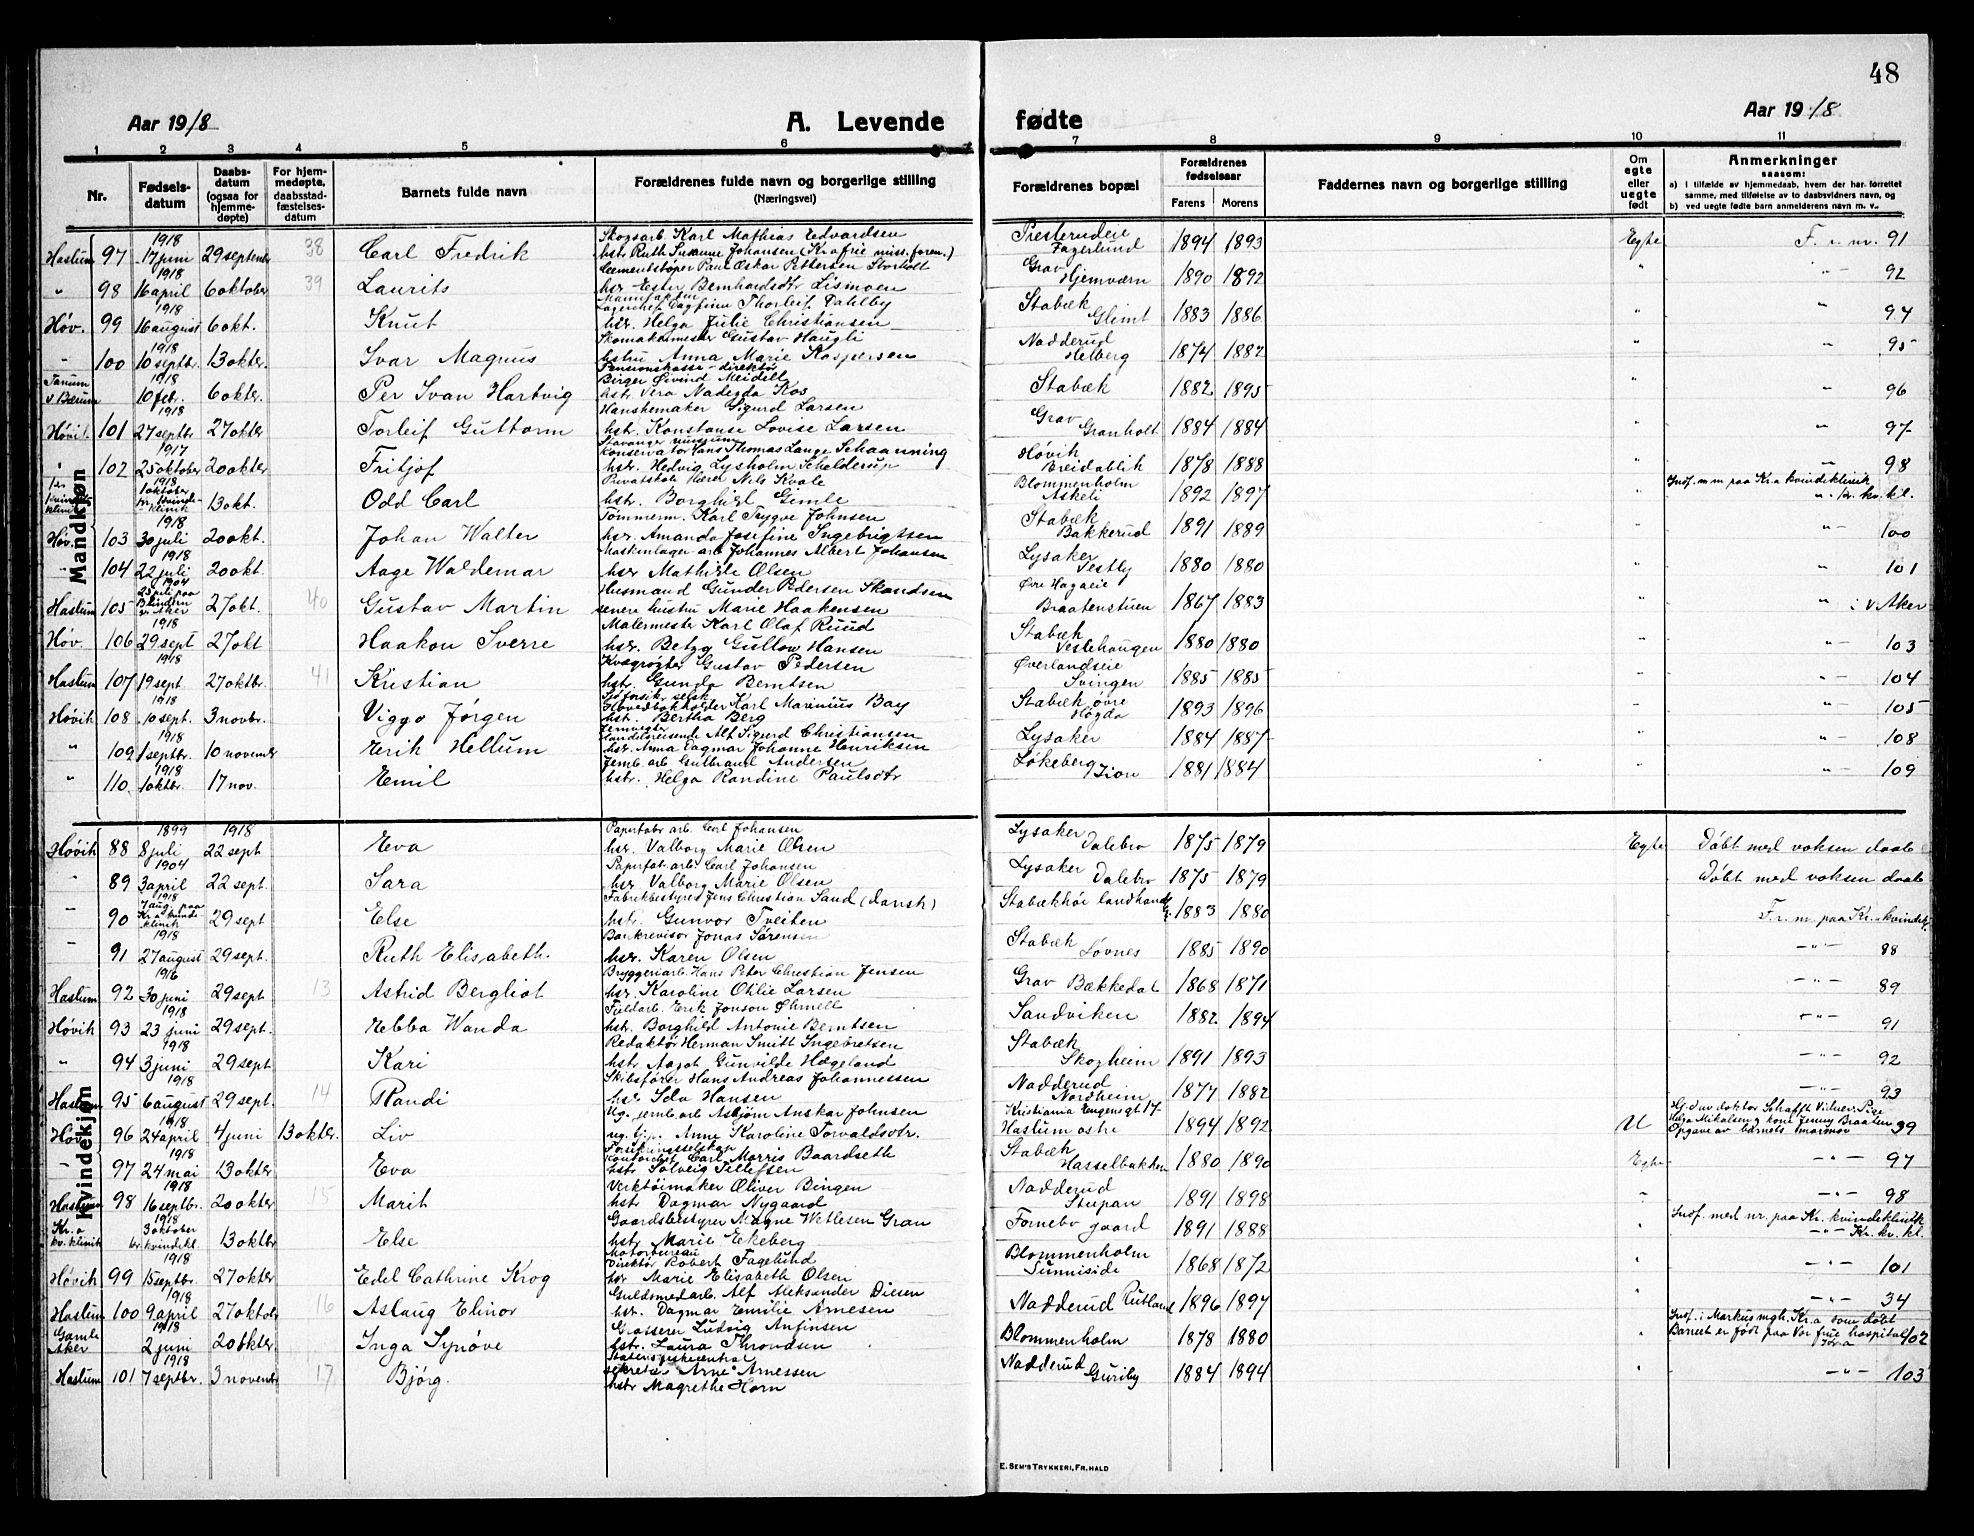 48
Aar 1918 A. Levende fødte Aar 1918
1 2 3 4 5 6 7 8 9 10 11
Nr. Fødsels-datum Daabs-datum (ogsaa for hjemme-døpte) For hjem-medøpte, daabsstad-fæstelses-datum Barnets fulde navn Forældrenes fulde navn og borgerlige stilling (Næringsvei) Forældrenes bopæl Forældrenes fødselsaar Farens Morens Faddernes navn og borgerlige stilling Om egte eller uegte født Anmerkninger saasom:
a) i tilfælde av hjemmedaab, hvem der har forrettet samme, med tilføielse av to daabsvidners navn, og
b) ved uegte fødte barn anmelderens navn m. v.
Mandkjøn
1918 Skogsarb. Karl Mathias Edvardsen Presterudeie
Haslum 97 17 juni 29 september 38 Carl Fredrik hstr Ruth Susanne Johansen (Kr a frie miss. foren.) Fagerlund 1894 1893 Egte F. u. nr. 91
1918 Cementstøper Paul Oskar Pettersen Storholt Grav
" 98 16 april 6 oktober 39 Laurits hst Ester Bernhardsdtr Lismoen Hjemværn 1890 1892 " " 92
1918 Lagerchef Dagfinn Thorleif Dahlby Stabæk
Høv. 99 16 august 6 okt. Knut hst. Helga Julie Christiansen Glimt 1883 1886 " " 94
1918 Skomakermester Gustav Haugli Nadderud
" 100 10 septbr. 13 oktbr. Ivar Magnus hstru Anna Marie Kaspersen Helberg 1874 1882 " " 95
1918 Pensionskasse-direktør
Tanum v Bærum 10 febr. 6 oktbr. Per Ivan Hartvig Birger Øivind Meidell hstr. Vera Nadesda Kos Stabæk 1882 1895 " " 96
1918 Hanskemaker Sigurd Larsen Grav
Høvik 101 27 septbr 27 oktbr Torleif Guttorm hstr. Konstanse Lovise Larsen Granholt 1884 1884 " " 97
1917 Stavanger museum Konservator Hans Thomas Lange Schaanning Høvik
" 102 25 oktober 20 oktbr Fritjof hstr. Hedvig Lysholm Schjelderup Breidablik 1878 1888 " " 98
1918 1 oktober Privatskole lærer Nils Kvale Blommenholm Indf. m nr paa Kr.a kvindeklinik
kvinde-klinik kvinde-klinik 13 okt. Odd Carl hstr. Borghild Gimle Askeli 1892 1897 " " kv. kl.
1918 Tømmerm. Karl Trygve Johnsen Stabæk
Høv. 103 30 juli 20 okt. Johan Walter hst. Amanda Josefine Ingebrigtsen Bakkerud 1891 1889 " " 100
1918 Maskinlager arb Johannes Albert Johansen Lysaker
" 104 22 juli 20 okt. Aage Waldemar hst Mathilde Olsen Vestby 1880 1880 " " 101
1904 25 juli paa Blindern v. Aker Husmand Gunder Pedersen Skandsen Øvre Hagaeie
Haslum 105 27 okt. 40 Gustav Martin senere hustru Marie Haakensen Braatenstuen 1867 1883 " " i V. Aker
1918 Malermester Karl Olaf Ruud Stabæk
Høv. 106 29 sept 27 okt Haakon Sverre hst. Betzy Gullow Hansen Vestehaugen 1880 1880 " " 103
1918 Kvægrøgter Gustav Pedersen Øverlandseie
Haslum 107 19 sept 27 oktbr. 41 Kristian hst. Gunda Berntsen Svingen 1885 1885 " " 104
1918 Sjøforsik. selsk Hovedbokholder Karl Marinius Bay Stabæk øvre
Høvik 108 10 sept. 3 novbr. Viggo Jørgen hst. Bertha Berg Høgda 1893 1896 " " 105
1918 Handelsreisende Alf Sigurd Christiansen
" 109 1 septbr. 10 november Erik Hellum hst. Anna Dagmar Johanne Henriksen Lysaker 1884 1887 " " 108
1918 Jernb. arb Gulbrand Andersen Løkeberg
" 110 1 oktbr. 17 nov. Emil hstr. Helga Randine Paulsdtr Zion 1881 1884 " " 109
Kvindekjøn
1899 1918 Papirfabr arb. Carl Johansen Lysaker
Høvik 88 8 juli 22 sept Eva hst. Valborg Marie Olsen Dalebro 1875 1879 Egte Døbt med voksen daab
1904 Papirfab. arb. Carl Johansen Lysaker
" 89 3 april 22 sept. Sara hst Valborg Marie Olsen Dalebro 1875 1879 Døbt med voksen daab
1918 7 aug. paa Kr.a kvinde klinik Fabrikbestyrer Jens Christian Sand (dansk) Stabækhøi landhand.
" 90 29 sept Else hst. Gunvor Tveiten 1883 1880 F. r. nr. paa Kr. kvindekl.
1918 Bankrevisor Jonas Sørensen Stabæk
" 91 27 august 29 sept. Ruth Elisabeth. hst. Karen Olsen Løvnes 1885 1890 " 88
1916 Bryggeriarb. Hans Peter Christian Jensen
Haslum 92 30 juni 29 sept 13 Astrid Bergliot hst. Karoline Othilie Larsen Grav Bækkedal 1868 1871 " 89
1918 Erik Jonson Øhrnell
Høvik 93 23 juni 29 sept. Ebba Wanda hst. Borghild Antonie Berntsen Sandviken 1882 1894 " 91
1918 Redaktør Herman Smitt Ingebretsen Stabæk
" 94 3 juni 29 sept Kari hst. Aagot Gunvilde Hægeland Skogheim 1891 1893 " 92
1918 Skibsfører Hans Andreas Johannessen Nadderud
Haslum 95 6 august 29 sept. 14 Randi hst Ida Hansen Nordheim 1877 1882 " 93
1918 Ug. jernb. arb Asbjørn Anskar Johnsen Kristiania Engensgt 17 Hj. d. av doktor Schafft
Høv 96 24 april 4 juni 13 oktbr. Liv ug. tjp. Anne Karoline Torvaldsdtr. Haslum østre 1894 1892 U Helga Mikalsen og kone Jenny Braaten Opgave av barnets mormor 39
1918 Forsikringsselskap Kontorchef Carl Morris Baardseth Stabæk
" 97 24 mai 13 oktbr Eva hstr Solveig Tellefsen Hasselbakken 1880 1890 Egte " 97
1918 Verktøimaker Oliver Bingen Nadderud
Haslum 98 16 septbr. 20 oktbr 15 Marit hst Dagmar Nygaard Stupan 1891 1898 " " 98
1918 3 oktober Gaardsbestyrer Magne Wetlesen Gran Indf. med nr. paa Kr. kvindeklinik
Kr.a kv. klinik kvindekl. 13 oktbr Else hstr. Marie Ekeberg Fornebo gaard 1891 1888 " " Kr. kv. kl.
1918 Motorbureau Direktør Robert Fagelund Blommenholm
Høvik 99 15 septbr. 27 oktbr Edel Cathrine Krog hst Marie Elisabeth Olsen Sunniside 1868 1872 " " 101
1918 Guldsmedarb. Alf Aleksander Diesen
Haslum 100 9 april 27 oktober 16 Aslaug Elinor hst. Dagmar Emilie Arnesen Nadderud Rutland 1896 1897 " " 34
1918 Grosserer Ludvig Anfinsen Indf. i Markus mgh. Kr.a som døbt
Gamle Aker 2 juni 20 oktbr Inga Synøve hst. Laura Throndsen Blommenholm 1878 1880 " Barnet er født paa Vor frue hospital Kr.a 102
1918 Sekretær Arne Arnessen Nadderud
Haslum 101 7 septbr. 3 november 17 Bjørg. hstr Magrethe Horn Guriby 1884 1894 " " 103
E. SEM'S TRYKKERI, FR.HALD